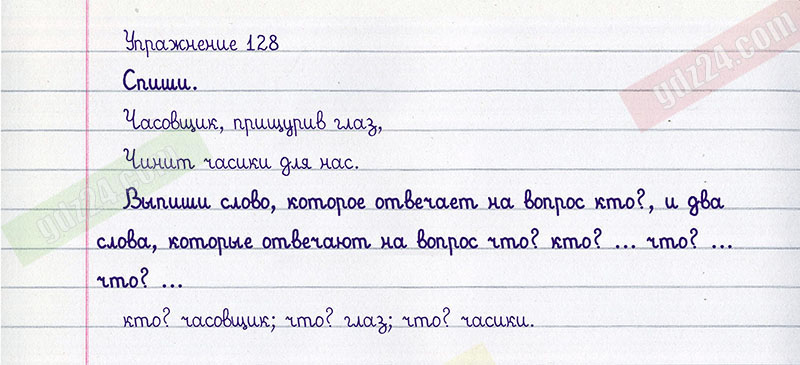 Упражнение 128
Спиши.
Часовщик, прищурив глаз,
Чинит часики для нас.
Выпиши слово, которое отвечает на вопрос кто?, и два
слова, которые отвечают на вопрос что? кто? ... что? ...
что? ...
кто? часовщик; что? глаз; что? часики.
gdz24.com
gdz24.com